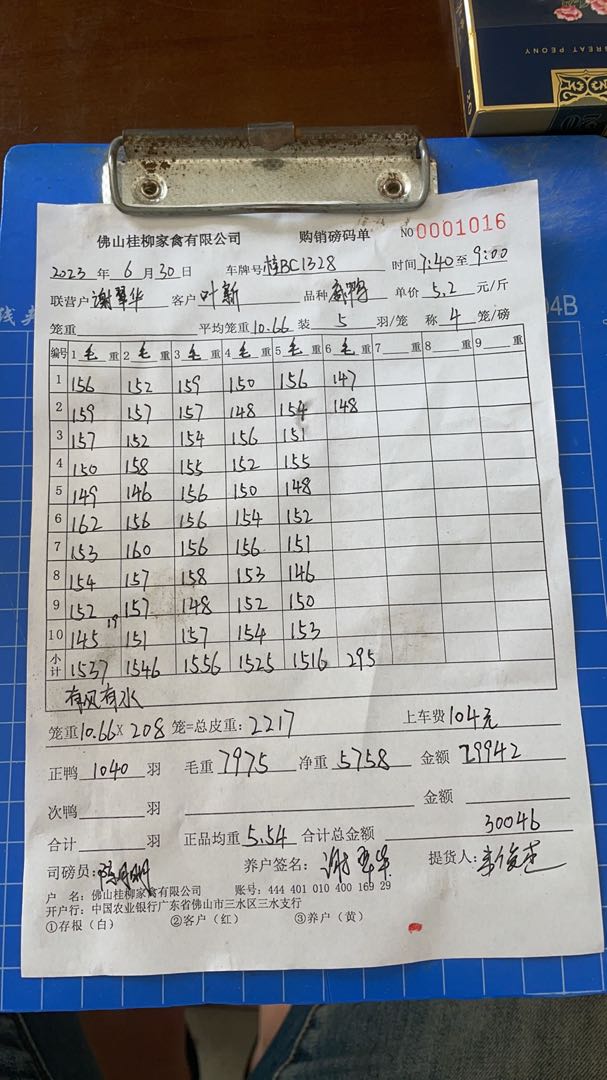 GREAT PEONY
20
佛山桂柳家禽有限公司 购销磅码单 NO 0001016
2023 年 6 月 30 日 车牌号 桂BC1328 时间 7:40 至 9:00
联营户 谢翠华 客户 叶新 品种 单价 5.2 元/斤
04B
笼重 平均笼重 10.66 装 5 羽/笼 称 4 笼/磅
编号 1 毛 重 2 毛 重 3 毛 重 4 毛 重 5 毛 重 6 毛 重 7 重 8 重 9 重
1 156 152 159 150 156 147
2 159 157 157 148 154 148
3 157 152 154 156 151
4 150 158 155 152 155
5 149 146 156 150 148
6 162 156 156 154 152
7 153 160 156 156 151
8 154 157 158 153 146
9 152 157 148 152 150
19
10 145 151 157 154 153
小计 1537 1546 1556 1525 1516 295
有风有水
笼重 10.66 X 208 笼=总皮重: 2217 上车费 104元
正鸭 1040 羽 毛重 7975 净重 5758 金额 29942
次鸭 羽 金额
合计 羽 正品均重 5.54 合计总金额 30046
司磅员: 养户签名: 谢翠华 提货人:
户 名: 佛山桂柳家禽有限公司 账号: 444 401 010 400 169 29
开户行: 中国农业银行广东省佛山市三水区三水支行
①存根（白） ②客户（红） ③养户（黄）